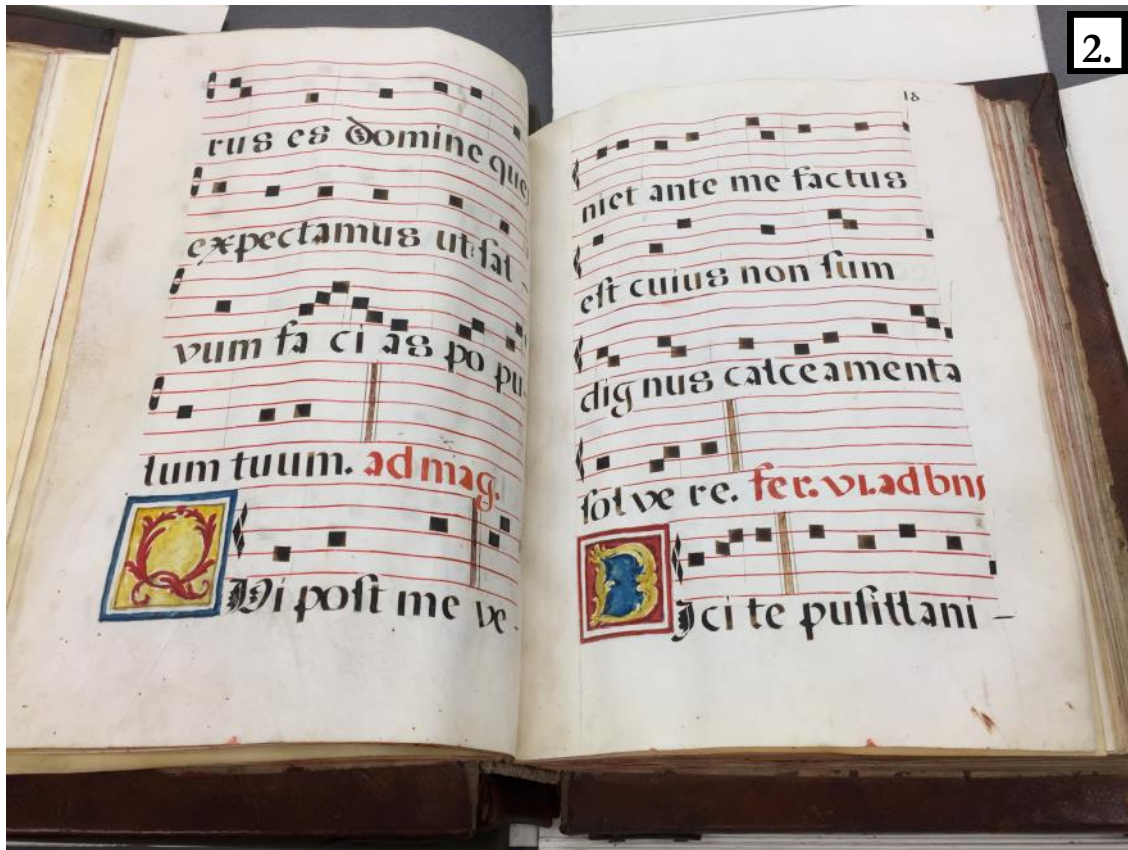 2.
rus es domine que
expectamus ut sal -
vum fa ci as po pu
lum tuum. ad mag.
QVi post me ve -
18
niet ante me factus
est cuius non sum
dig nus calceamenta
sol ve re. fer. vi. ad bns
DIci te pusillani -